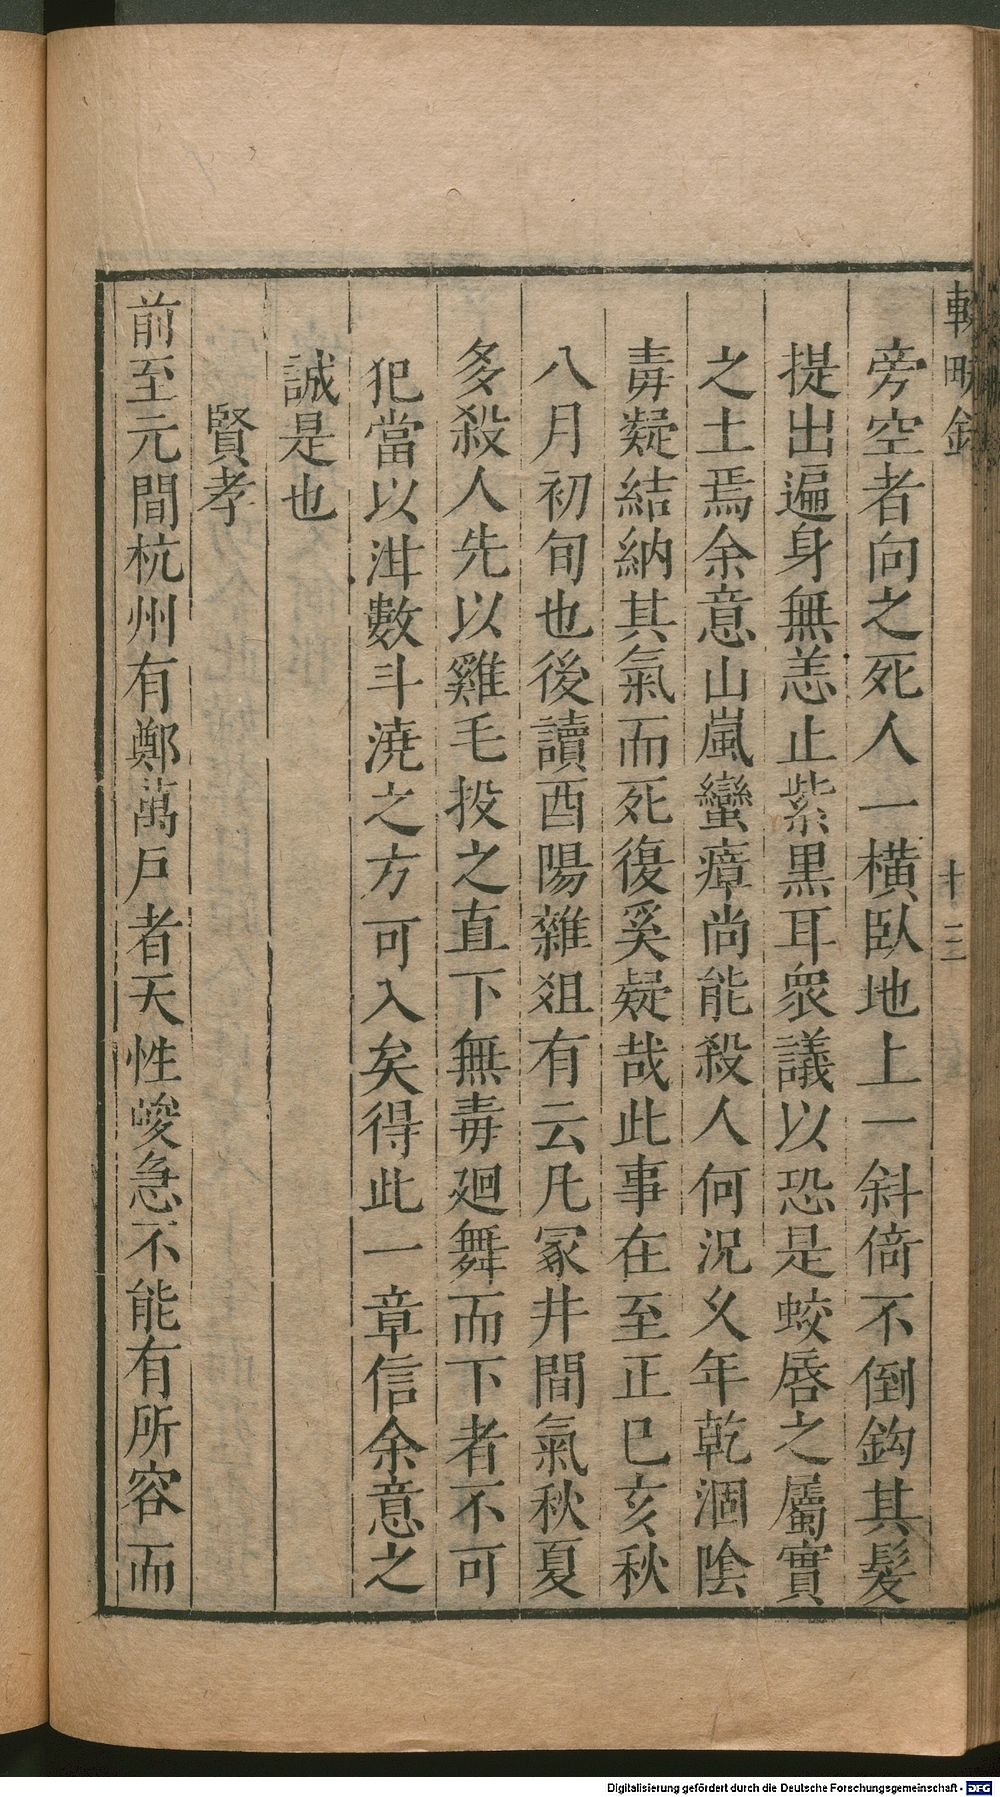 旁空者向之死人一橫臥地上一斜倚不倒鈎其髮
提出遍身無恙止紫黑耳衆議以恐是蛟唇之屬實
之土焉余意山嵐蠻瘴尚能殺人何況久年乾涸陰
毒凝結納其氣而死復奚疑哉此事在至正己亥秋
八月初旬也後讀酉陽雜俎有云凡冢井間氣秋夏
多殺人先以雞毛投之直下無毒廻舞而下者不可
犯當以泔數斗澆之方可入矣得此一章信余意之
誠是也
賢孝
前至元間杭州有鄭萬戶者天性峻急不能有所容而
十三
Digitalisierung gefördert durch die Deutsche Forschungsgemeinschaft - DFG